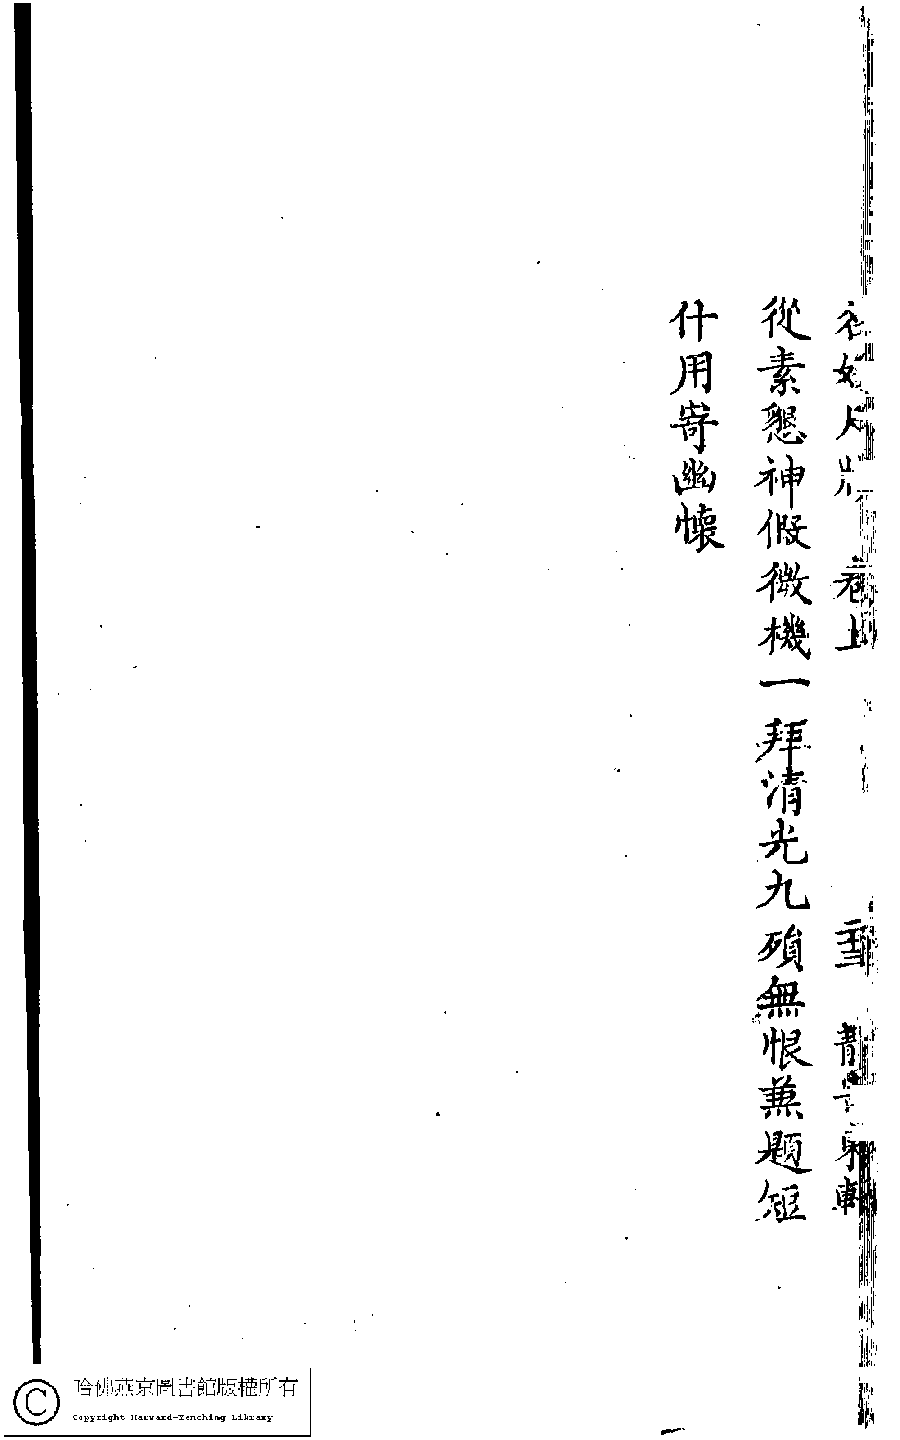 卷上 軒
從素懇神假微機一拜清光九殞無恨兼題短
什用寄幽懷
哈佛燕京圖書館版權所有
Copyright Harvard-Yenching Library